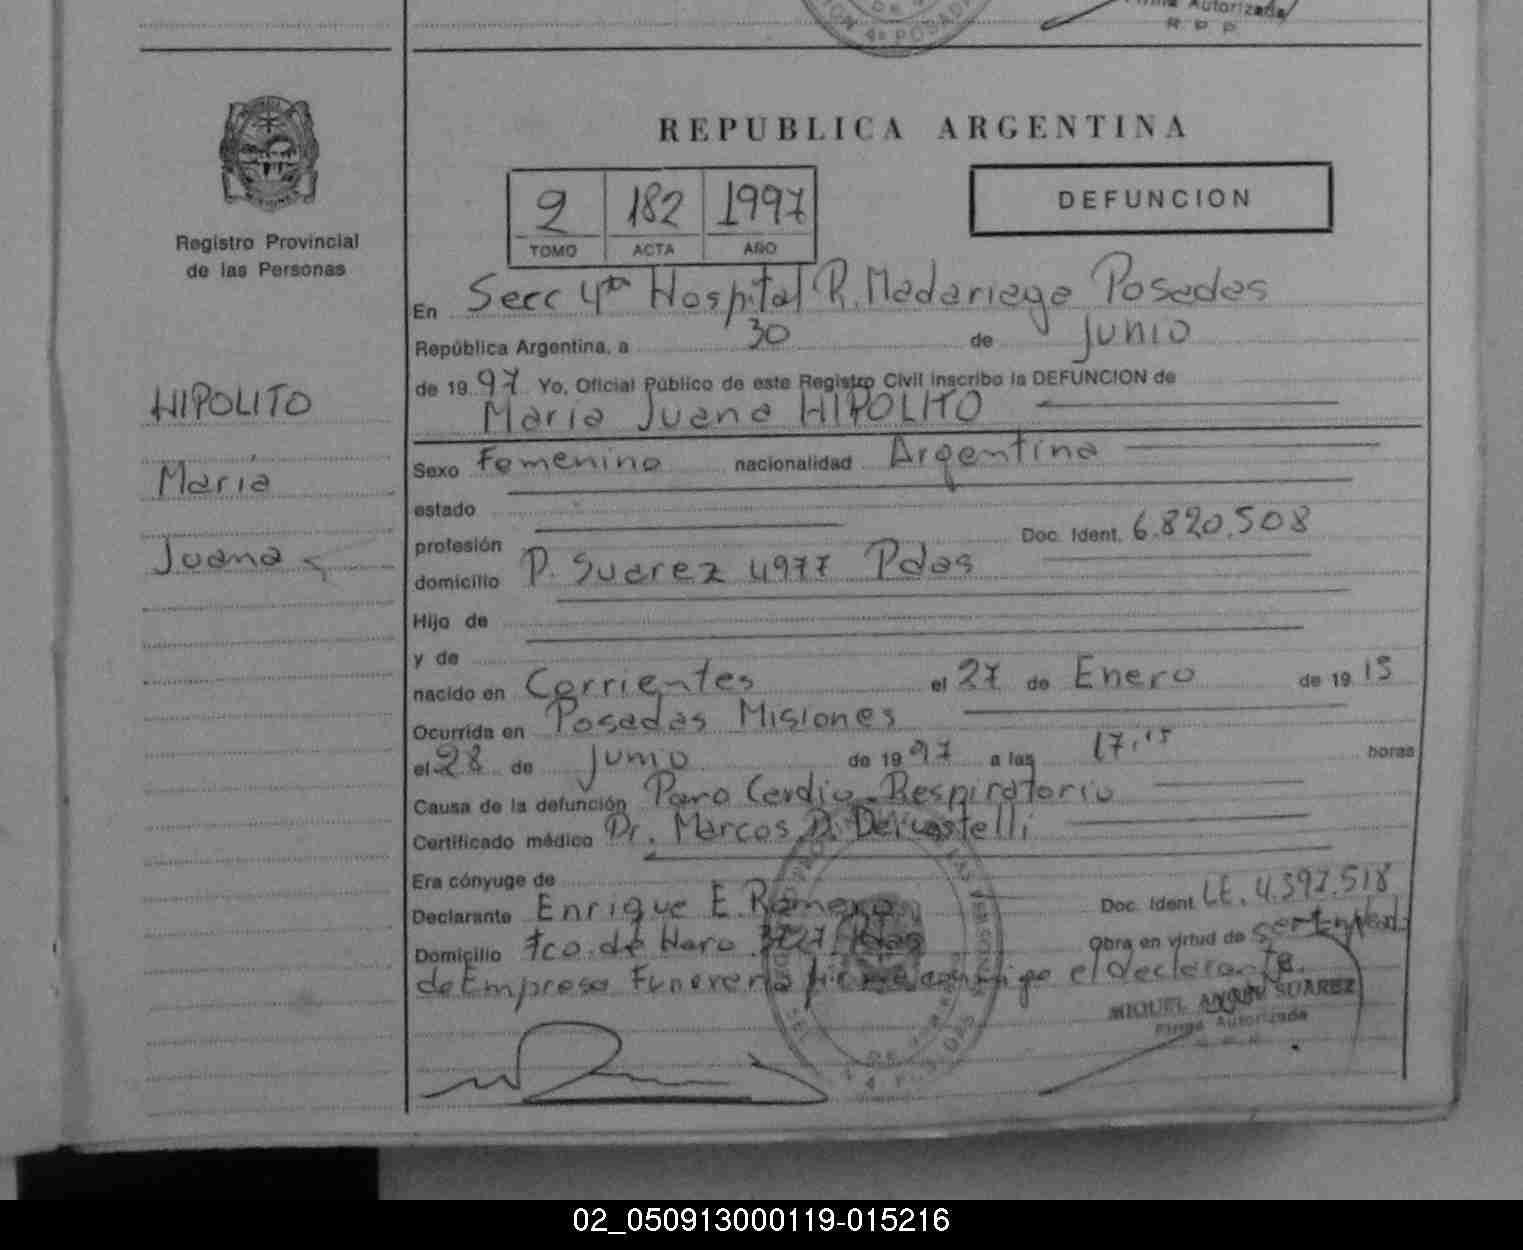 Firma Autorizada
R. P. P.
REPUBLICA ARGENTINA
Registro Provincial
de las Personas
2 182 1997
TOMO ACTA AÑO
DEFUNCION
En Secc 4ta Hospital R. Madariaga Posadas
República Argentina, a 30 de Junio
de 1997 Yo, Oficial Público de este Registro Civil inscribo la DEFUNCION de
Maria Juana HIPOLITO
HIPOLITO
Maria
Juana
Sexo Femenino nacionalidad Argentina
estado
profesión Doc. Ident. 6.820.508
domicilio P. Suarez 4977 Pdas
Hijo de
y de
nacido en Corrientes el 27 de Enero de 1915
Ocurrida en Posadas Misiones
el 28 de Junio de 1997 a las 17,15 horas
Causa de la defunción Paro Cardio-Respiratorio
Certificado médico Dr. Marcos D.
Era cónyuge de
Declarante Enrique E. Romero Doc. Ident. LE. 4.392.518
Domicilio Fco. de Haro 3727 Pdas Obra en virtud de ser Emplead.
de Empresa Funeraria firma conmigo el declarante.
MIGUEL ANGEL SUAREZ
Firma Autorizada
02_050913000119-015216